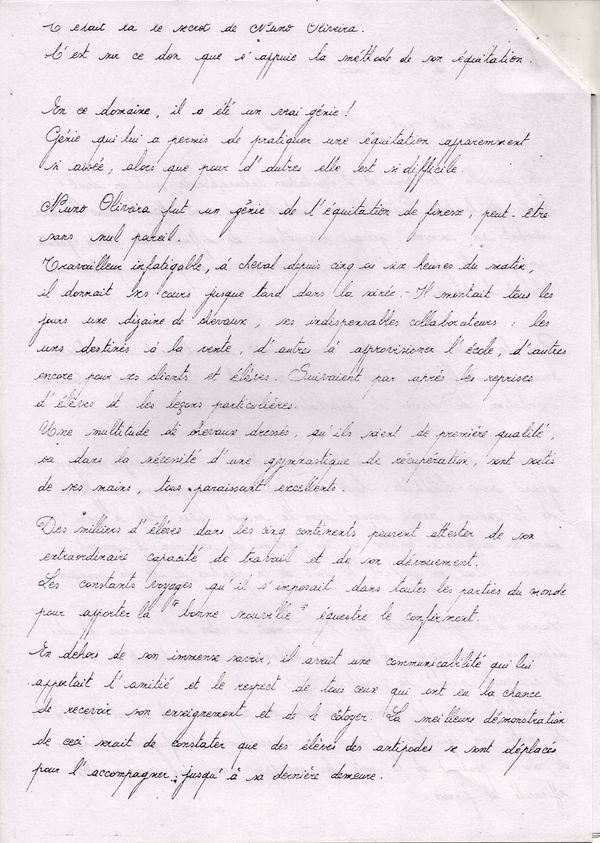 C'était là le secret de Nuno Oliveira.
C'est sur ce don que s'appuie la méthode de son équitation.
En ce domaine, il a été un vrai génie!
Génie qui lui a permis de pratiquer une équitation apparemment
si aisée, alors que pour d'autres elle est si difficile.
Nuno Oliveira fut un génie de l'équitation de finesse, peut-être
sans nul pareil.
Travailleur infatigable, à cheval depuis cinq ou six heures du matin,
il donnait ses cours jusque tard dans la soirée. Il montait tous les
jours une dizaine de chevaux, ses indispensables collaborateurs : les
uns destinés à la vente, d'autres à approvisionner l'école, d'autres
encore pour ses clients et élèves. Suivaient par après les reprises
d'élèves et les leçons particulières.
Une multitude de chevaux dressés, qu'ils soient de première qualité,
ou dans la nécessité d'une gymnastique de récupération, sont sortis
de ses mains, tous paraissant excellents.
Des milliers d'élèves dans les cinq continents peuvent attester de son
extraordinaire capacité de travail et de son dévouement.
Les constants voyages qu'il s'imposait dans toutes les parties du monde
pour apporter la "bonne nouvelle" équestre le confirment.
En dehors de son immense savoir, il avait une communicabilité qui lui
apportait l'amitié et le respect de tous ceux qui ont eu la chance
de recevoir son enseignement et de le côtoyer. La meilleure démonstration
de ceci serait de constater que des élèves des antipodes se sont déplacés
pour l'accompagner jusqu'à sa dernière demeure.